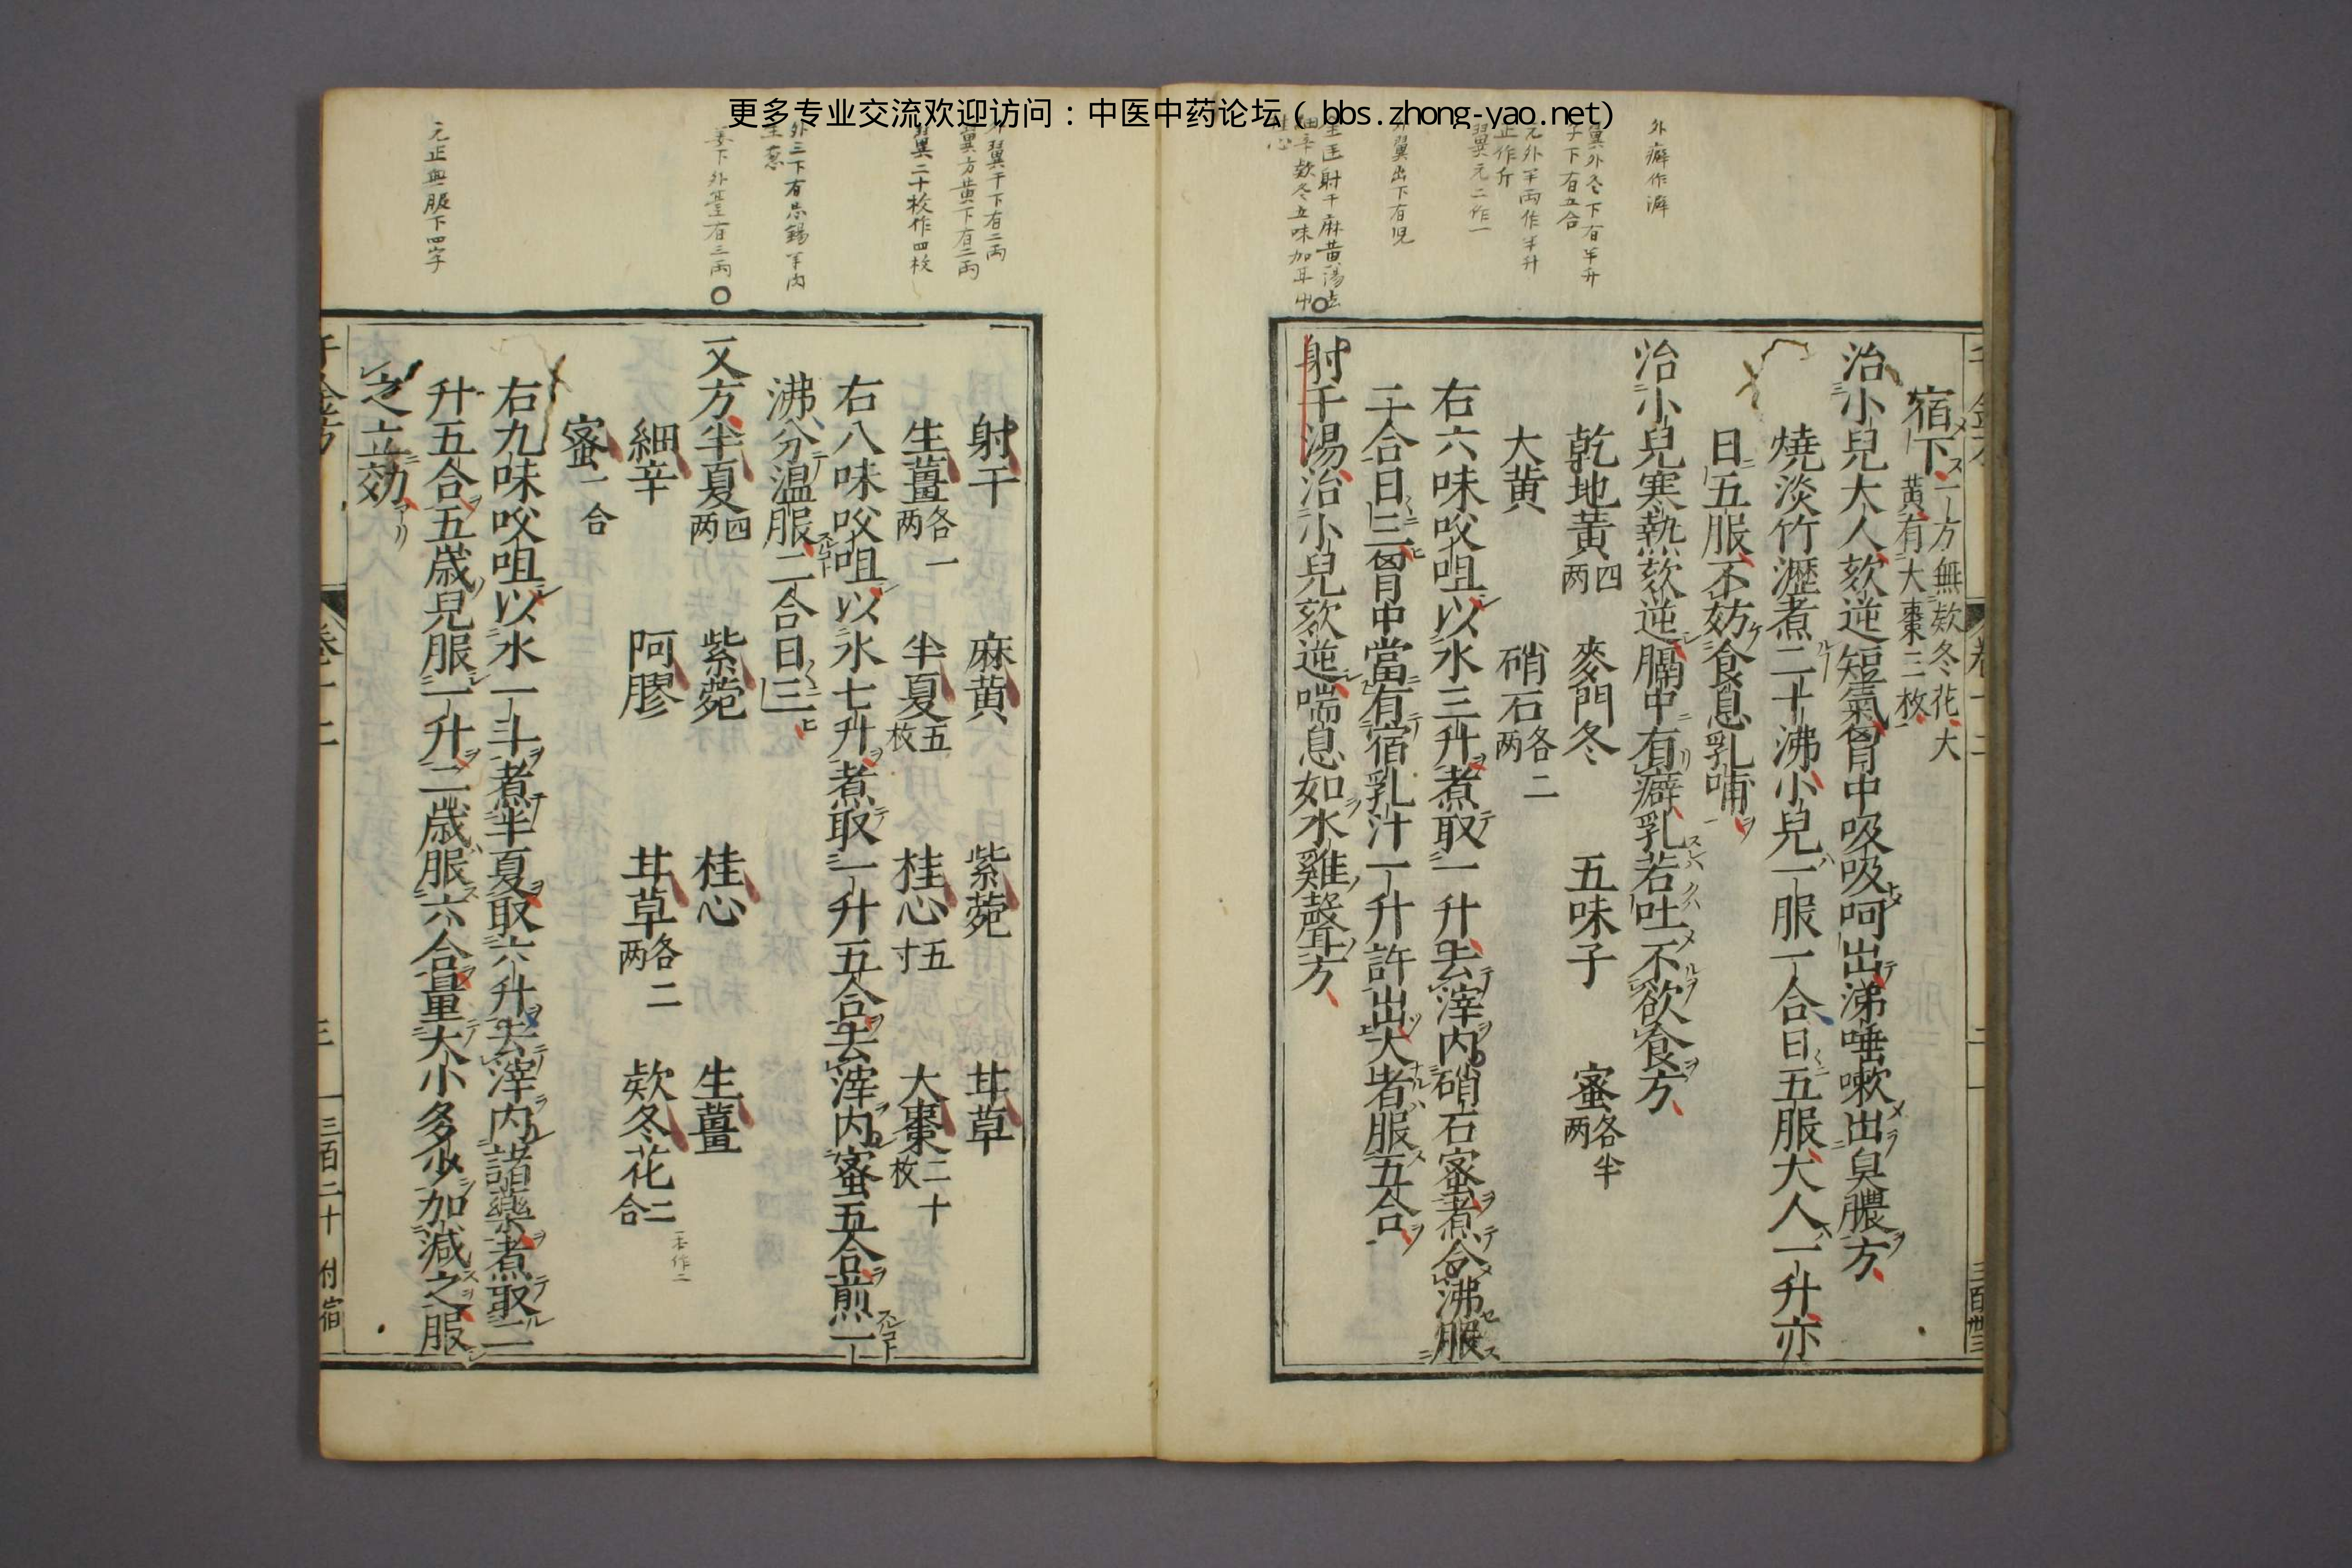 更多专业交流欢迎访问：中医中药论坛（bbs.zhong-yao.net）
外癖作澼
翼外冬下有半升
子下有五合
元外半两作半升
正作斤
翼元二作一
外翼出下有児
宿下一方無欬冬花大
黄有大棗三枚
治小兒大人欬逆短氣胷中吸吸呵出涕唾嗽出臭膿方
燒淡竹瀝煮二十沸小兒一服一合日五服大人一升亦
日五服不妨食息乳哺
治小兒寒熱欬逆膈中有癖乳若吐不欲食方
乾地黄四两 麥門冬 五味子 蜜各半两
大黄 硝石各二两
右六味㕮咀以水三升煮取一升去滓内硝石蜜煮令沸服
二合日三胷中當有宿乳汁一升許出大者服五合
射干湯治小兒欬逆喘息如水雞聲方
外翼干下有二两
翼方黄下有二两
翼二十枚作四枚
姜下外臺有三两
元正無服下四字
射干 麻黄 紫菀 甘草
生薑各一两 半夏五枚 桂心五寸 大棗二十枚
右八味㕮咀以水七升煮取一升五合去滓内蜜五合煎一
沸分温服二合日三
又方半夏四两 紫菀 桂心 生薑
細辛 阿膠 甘草各二两 欬冬花二合
一本作二
蜜一合
右九味㕮咀以水一斗煮半夏取六升去滓内諸藥煮取二
升五合五歲兒服一升二歲服六合量大小多少加減之服
之立効
三百二十